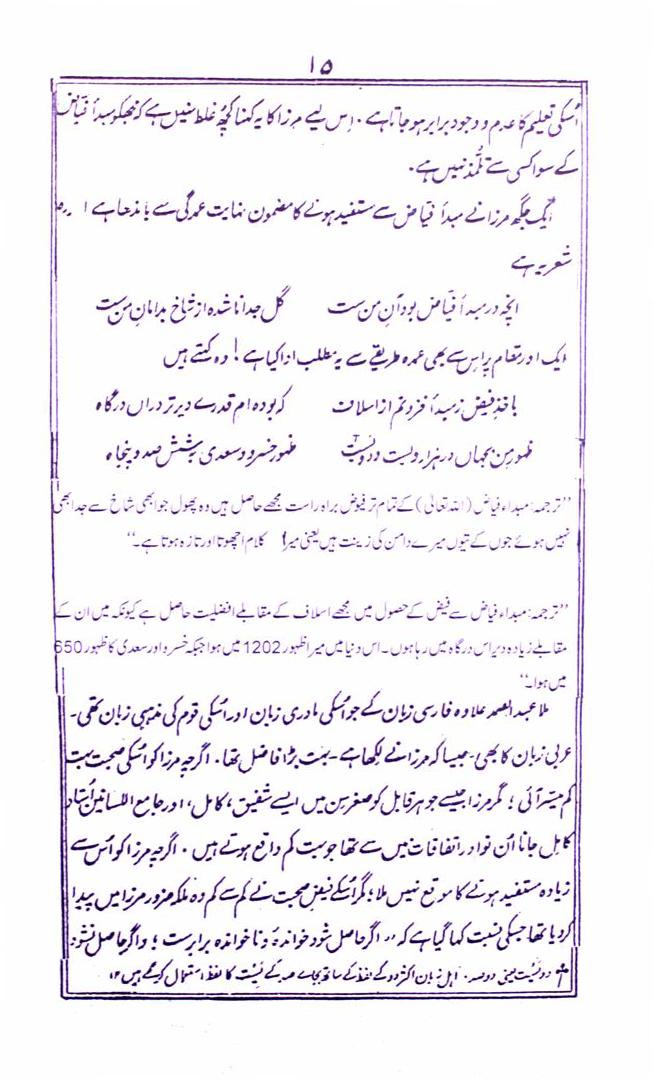 ۱۵
اُسکی تعلیم کا عدم و وجود برابر ہو جاتا ہے۔ اِس لیے مرزا کا یہ کہنا کچھ غلط نہیں ہے کہ مجھکو مبدأ فیّاض
کے سوا کسی سے تلمُّذ نہیں ہے۔
ایک جگہ مرزا نے مبدأ فیّاض سے مستفید ہونے کا مضمون نہایت عمدگی سے باندھا ہے
شعر یہ ہے
انچہ در مبدأ فیّاض بود آنِ من ست گل جدا ناشدہ از شاخ بدامانِ من ست
ایک اور مقام پر اِس سے بھی عمدہ طریقے سے یہ مطلب ادا کیا ہے! وہ کہتے ہیں
باخذِ فیض ز مبدأ فزونم از اسلاف کہ بودہ ام قدرے دیر تر دراں درگاہ
ظہورِ من بجہاں در ہزار و دوست و دو ظہورِ خسرو و سعدی بشش صد و پنجاہ
’’ترجمہ: مبداء فیاض (اللہ تعالیٰ) کے تمام تر فیوض براہ راست مجھے حاصل ہیں وہ پھول جو ابھی شاخ سے جدا بھی
نہیں ہوئے جوں کے تیوں میرے دامن کی زینت ہیں یعنی میرا کلام اچھوتا اور تازہ ہوتا ہے۔‘‘
’’ترجمہ: مبداء فیاض سے فیض کے حصول میں مجھے اسلاف کے مقابلے افضلیت حاصل ہے کیونکہ میں ان کے
مقابلے زیادہ دیر اس درگاہ میں رہا ہوں۔ اس دنیا میں میرا ظہور 1202 میں ہوا جبکہ خسرو اور سعدی کا ظہور 650
میں ہوا۔‘‘
ملا عبدالصمد علاوہ فارسی زبان کے جو اُسکی مادری زبان اور اُسکی قوم کی مذہبی زبان تھی۔
عربی زبان کا بھی۔ جیسا کہ مرزا نے لکھا ہے۔ بہت بڑا فاضل تھا۔ اگرچہ مرزا کو اُسکی صحبت بہت
کم میسّر آئی؛ مگر مرزا جیسے جوہر قابل کو صغر سن میں ایسے شفیق، کامل، اور جامع اللسانین اُستاد
کا مِل جانا اُن نوادر اتفاقات میں سے تھا جو بہت کم واقع ہوتے ہیں۔ اگرچہ مرزا کو اُس سے
زیادہ مستفید ہونے کا موقع نہیں ملا؛ مگر اُسکے فیضِ صحبت نے کم سے کم وہ ملکہ ضرور مرزا میں پیدا
کر دیا تھا جسکی نسبت کہا گیا ہے کہ ’’اگر حاصل شود خواندہ و ناخواندہ برابر ست؛ و اگر حاصل نشود
دو یعنی دو صد۔ اہلِ زبان اکثر دو کے لفظ کے ساتھ بجائے صد کے کا لفظ استعمال کرتے ہیں ۱۲